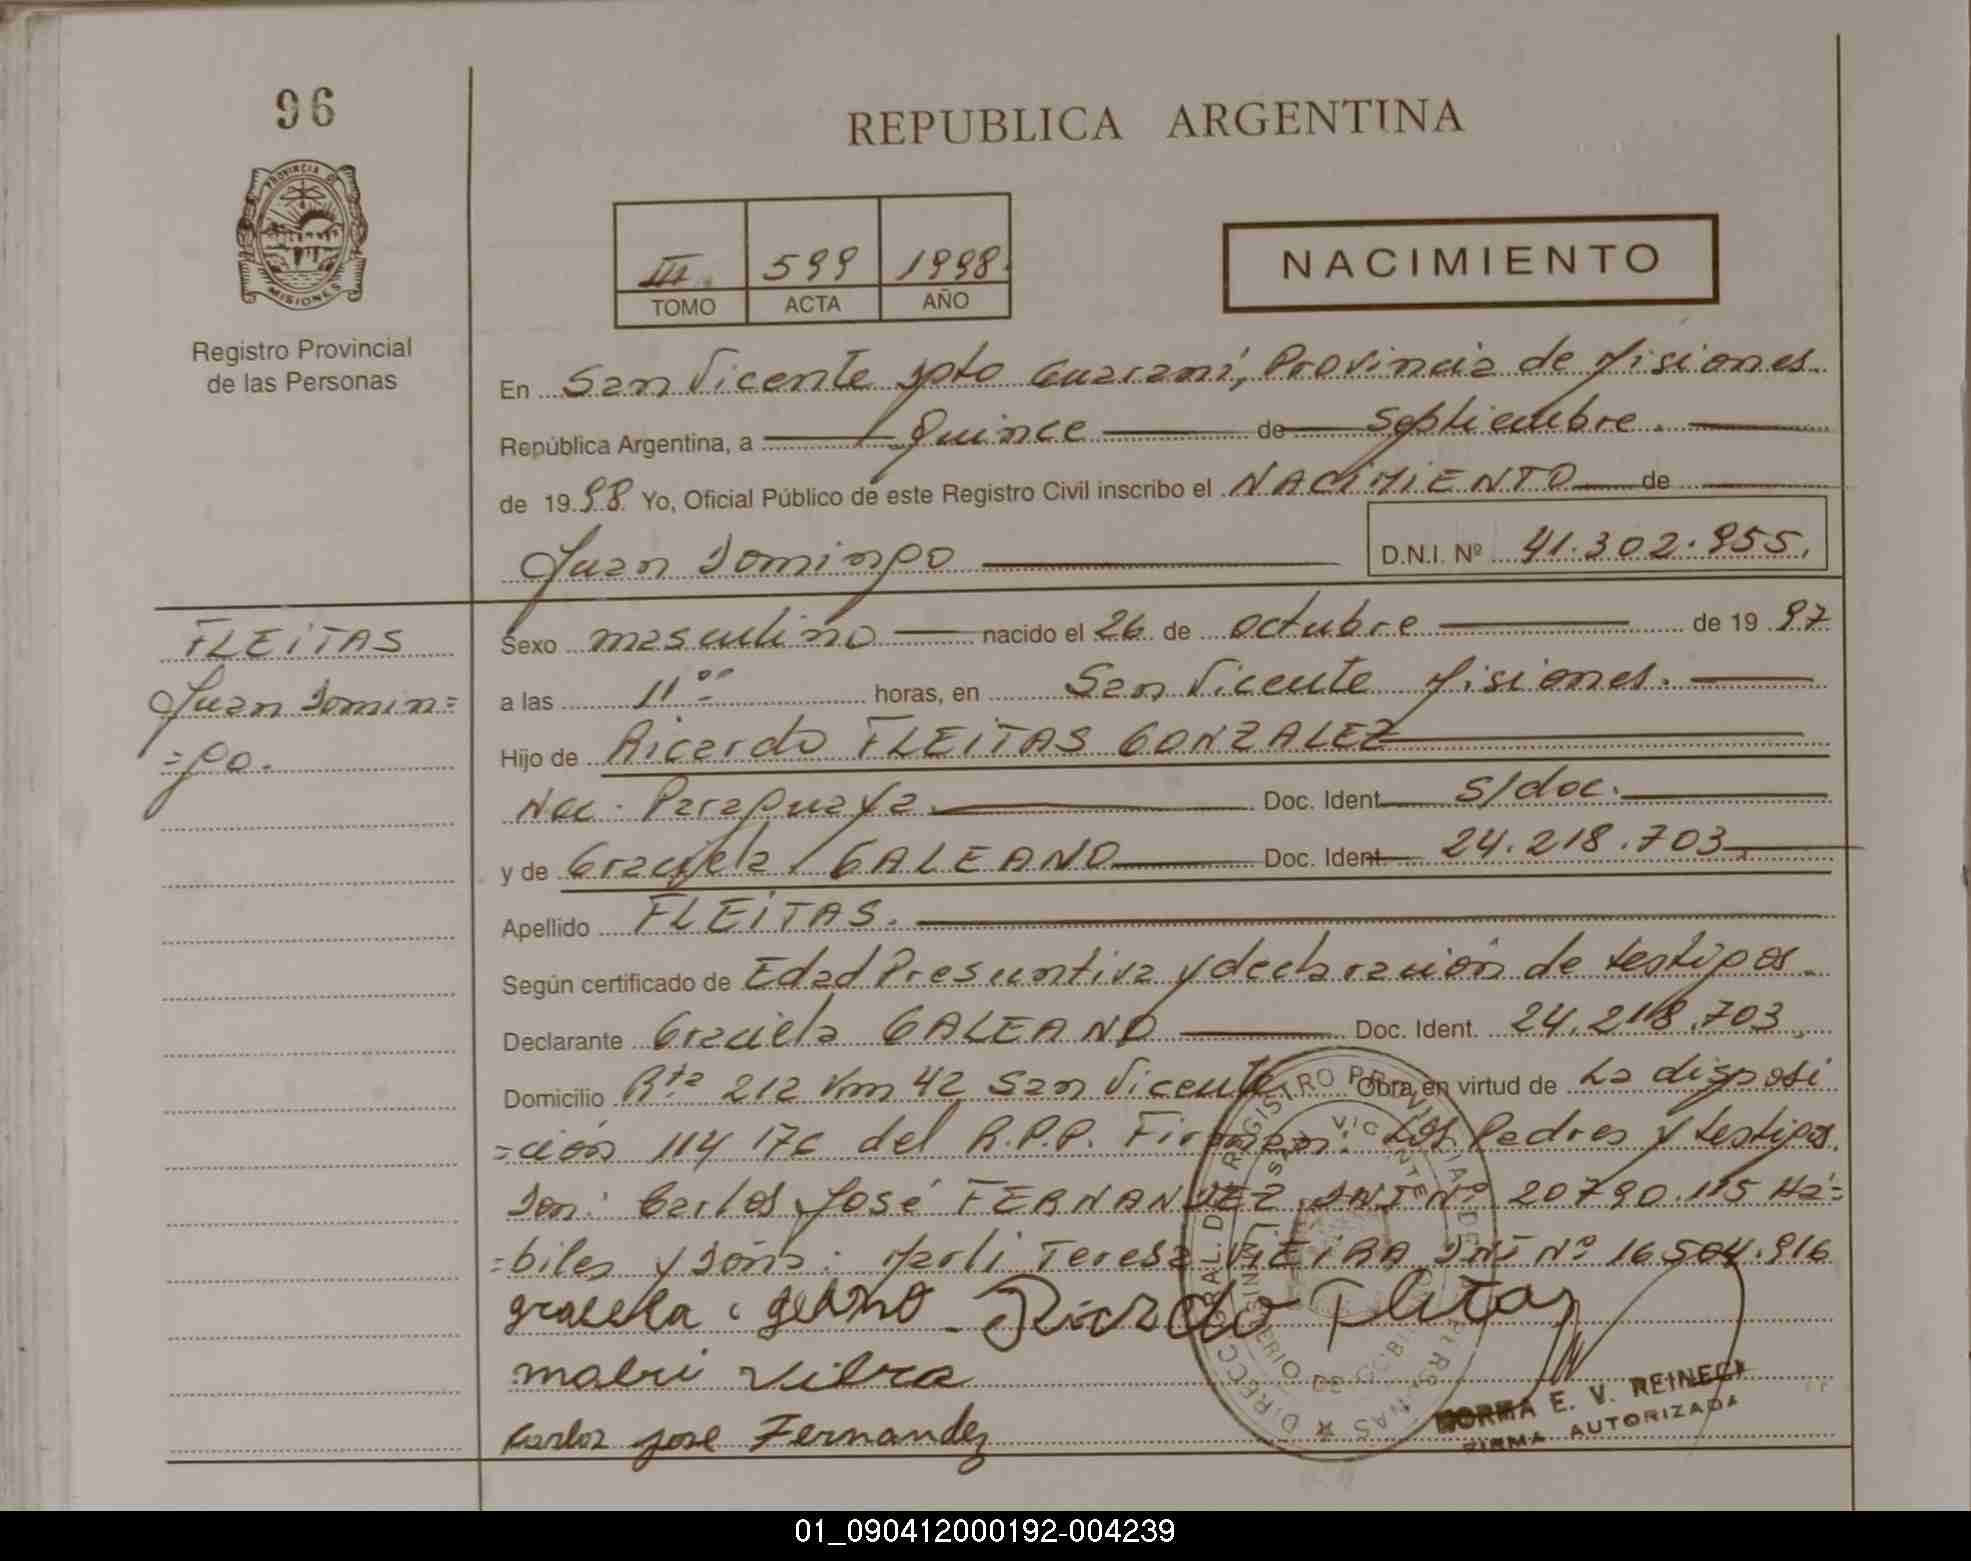 96
REPUBLICA ARGENTINA
PROVINCIA DE
MISIONES
Registro Provincial
de las Personas
III 599 1998.
TOMO ACTA AÑO
NACIMIENTO
En San Vicente Dpto Guaraní, Provincia de Misiones.
República Argentina, a Quince de Septiembre.
de 19 98 Yo, Oficial Público de este Registro Civil inscribo el NACIMIENTO de
Juan Domingo
D.N.I. Nº 41.302.955.
FLEITAS
Juan Domin=
=go.
Sexo masculino nacido el 26 de octubre de 19 97
a las 11 00 horas, en San Vicente Misiones.
Hijo de Ricardo FLEITAS GONZALEZ
Nac. Paraguaya. Doc. Ident. S/doc.
y de Graciela GALEANO Doc. Ident. 24.218.703.
Apellido FLEITAS.
Según certificado de Edad Presuntiva y declaración de testigos.
Declarante Graciela GALEANO Doc. Ident. 24.218.703.
Domicilio Rta 212 Km 42 San Vicente Obra en virtud de La disposi
=ción 114 del R.P.P. Firman: Los Padres y testigos.
Don: Carlos José FERNANDEZ DNI Nº 20790.115 Há=
=biles y Doña: Marli Teresa VIEIRA DNI Nº 16.504.916
Ricardo Fleitas
Carlos jose Fernandez
NORMA E. V. REINECK
FIRMA AUTORIZADA
01_090412000192-004239